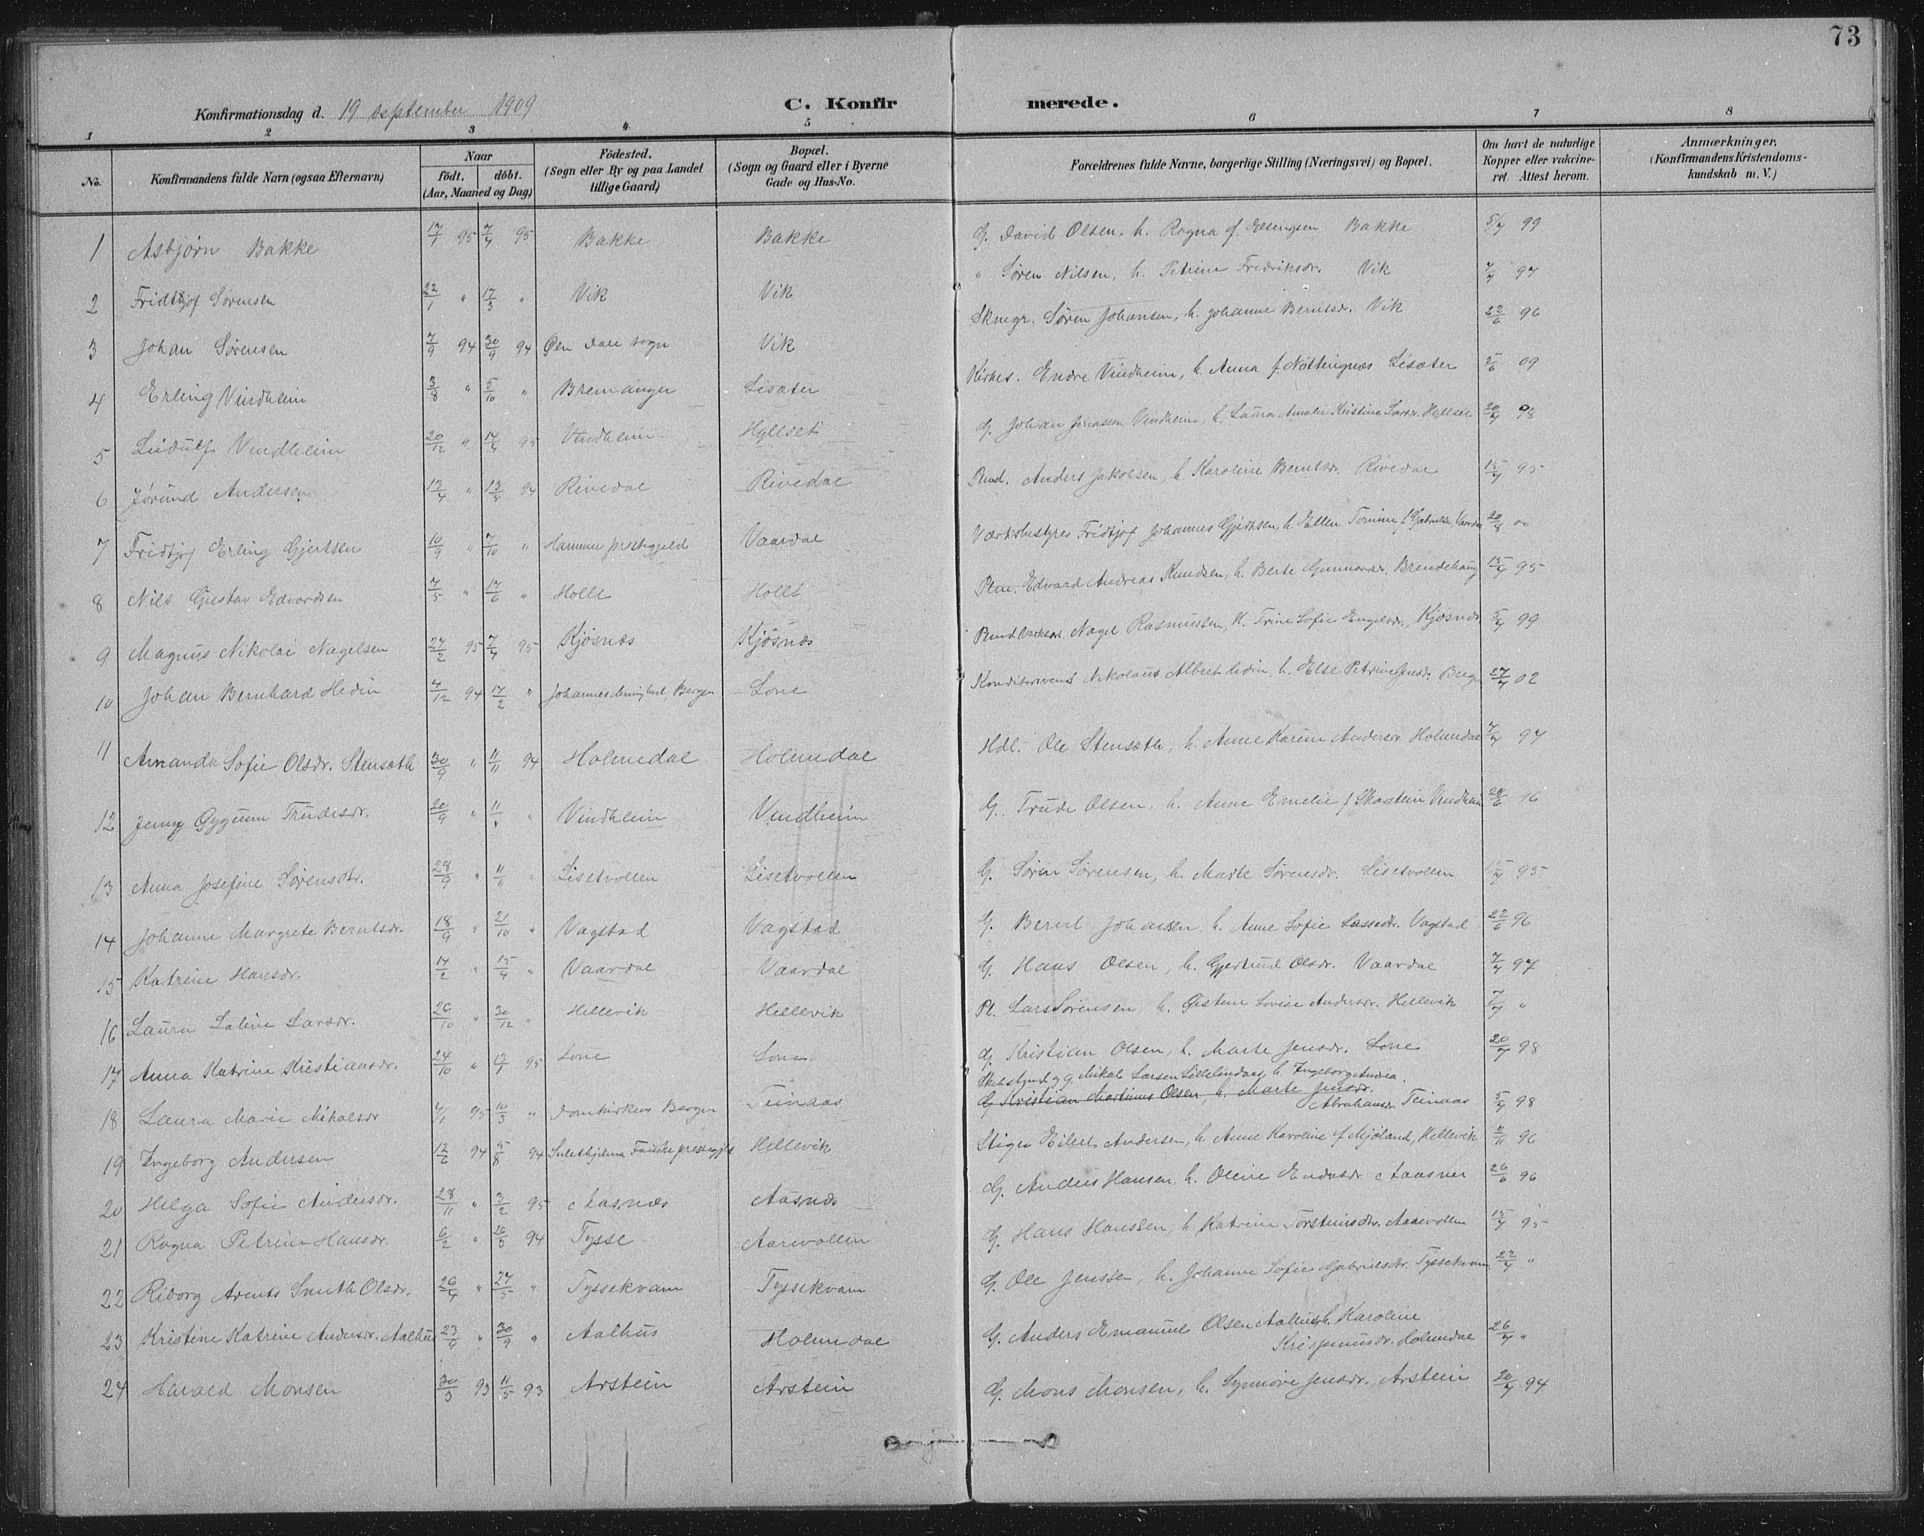 73
Konfirmationsdag d. 19 september 1909
C. Konfirmerede.
1 2 3 4 5 6 7 8
No. Konfirmandens fulde Navn (ogsaa Efternavn) Naar födt. döbt. (Aar, Maaned og Dag) Födested. (Sogn eller By og paa Landet tillige Gaard) Bopæl. (Sogn og Gaard eller i Byerne Gade og Hus-No. Forældrenes fulde Navne, borgerlige Stilling (Næringsvei) og Bopæl. Om havt de naturlige Kopper eller vakcineret. Attest herom. Anmærkninger, (Konfirmandens Kristendomskundskab m. V.)
1 Asbjørn Bakke 17/1 95 7/4 95 Bakke Bakke G. David Olsen, h. Ragna f. Ellingsen Bakke 99
2 Fridtjof Sørensen 22/1 " 17/3 " Vik Vik " Søren Nilsen, h. Petrine Fredriksdr. Vik 7/7 97
3 Johan Sørensen 7/9 94 30/9 94 Øen Dale sogn Vik Skmgr. Søren Johansen, h. Johanne Berntsdr. Vik 22/6 96
4 Erling Vindheim 3/8 " 5/10 " Bremanger Lisæter Kirkes. Endre Vindheim, h. Anna f. Nøttingnes Lisæter 09
5 Ludulf Vindheim 20/12 " 95 Vindheim Hyllset G. Johan Jonassen Vindheim, h. Laura Amalie Kristine Larsdr. Hyllset 98
6 Jørund Andersen 13/4 " 13/5 94 Rivedal Rivedal Anders Jakobsen, h. Karoline Berntsdr. Rivedal 95
7 Fridtjof Erling Gjertsen 10/9 " 7/10 " Hammer prestegjeld Vaardal Værksbestyrer Fridtjof Johannes Gjertsen, h. Ellen f. Gabrielsen 20/8 00
8 Nils Gustav Edvardsen 7/5 " 17/6 " Holle Holle Plm. Edvard Andreas Knudsen, h. Berte Gunnarsdr. Brendehaug 95
9 Magnus Nikolai Nagelsen 27/2 95 7/4 95 Kjøsnæs Kjøsnæs Nagel Rasmussen, h. Trine Sofie Kjøsnæs 99
10 Johan Bernhard Hedin 4/12 94 17/2 " Bergen Lone Nikolaus Albert Hedin h. Else Petrine Jensdr. Berg 27/7 02
11 Amanda Sofie Olsdr. Stensæth 30/9 " 11/11 94 Holmedal Holmedal Hdl. Ole Stensæth, h. Anne Karine Andersdr Holmedal 7/7 97
12 Jenny Gygum Trudesdr. 20/9 " 11/" " Vindheim Vindheim G. Trude Olsen, h. Anne Emelie f. Skarstein Vindheim 96
13 Anna Josefine Sørensdr. 28/9 " 11/11 " Lisetvollen Lisetvollen G. Søren Sørensen, h. Marte Sørensdr. Lisetvollen 95
14 Johanne Margrete Berntsdr. 18/9 " 21/10 " Vagstad Vagstad G. Bernt Johansen, h. Anne Sofie Lassedr. Vagstad 22/6 96
15 Katrine Hansdr. " " Vaardal Vaardal G. Hans Olsen, h. Gjertrud Olsdr. Vaardal 7/7 97
16 Laura Saline Larsdr. 26/10 " 30/12 " Hellevik Hellevik Pl. Lars Sørensen, h. Østine Lovise Andersdr. Hellevik 7/7 "
17 Anna Katrine Kristiansdr. 24/10 " 95 Lone Lone G. Kristian Olsen, h. Marte Jensdr. Lone 20/7 98
G. Mikal Larsen h. Ingeborg Andrea
18 Laura Marie Mikalsdr 95 " Domkirken Bergen Teinaas G Kristian Martinus Olsen, h. Marte Jensdr. Abrahamsdr. Teinaas 98
19 Ingeborg Andersen 94 5/8 94 Sulitelma Fauske prestegjeld Hellevik Stiger Eilert Andersen, h. Anne Karoline f. Mjøland, Hellevik 96
20 Helga Sofie Andersdr. 28/11 " 3/2 95 Aasnæs Aasnæs G. Anders Hansen, h. Oline Endresdr. Aasnes 26/6 96
21 Ragna Petrine Hansdr. 6/2 " 94 Tysse Aarvollen G. Hans Hanssen, h. Katrine Torsteinsdr. Aarvollen 95
22 Riborg Arents Smith Olsdr. 26/4 " 27/5 " Tyssekvam Tyssekvam G. Ole Jenssen, h. Johanne Sofie Gabrielsdr. Tyssekvam "
23 Kristine Katrine Andersdr. Aalhus 23/9 " 30/9 " Aalhus Holmedal G. Anders Emanuel Olsen Aalhus, h. Karoline Krispinusdr. Holmedal 26/7 "
24 Harald Monsen 30/3 93 11/5 93 Arstein Arstein G. Mons Monsen, h. Synnøve Jensdr. Arstein 20/7 94